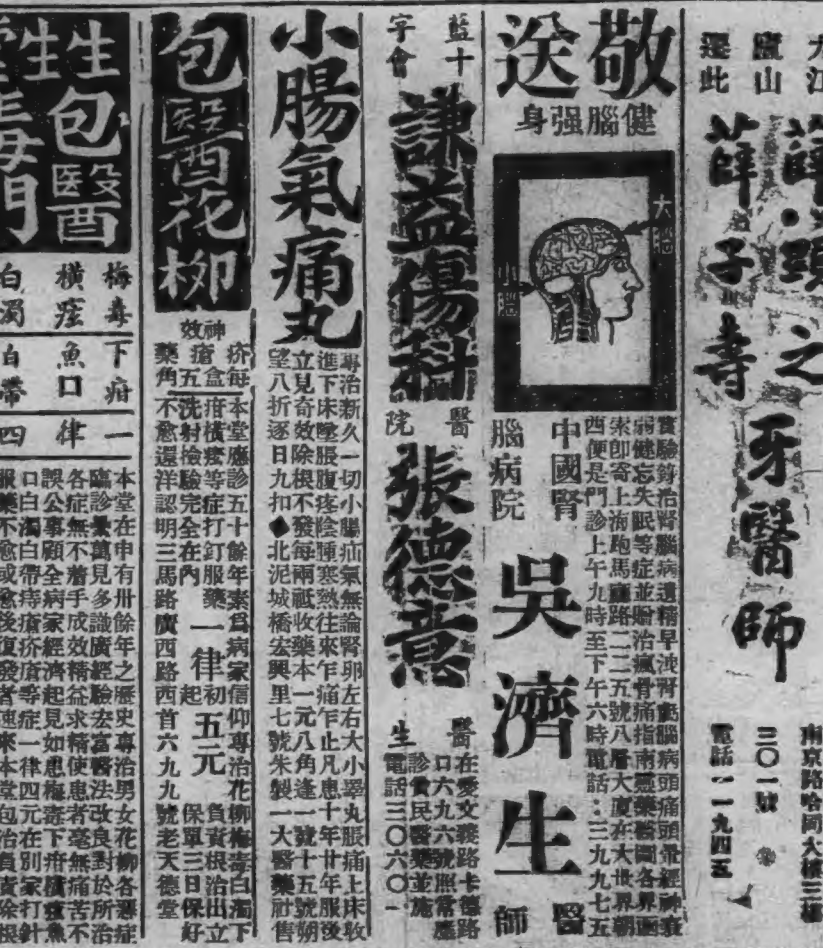 九江
廬山
還此
薛子壽
牙醫師
南京路哈同大樓三樓
三〇一號
電話一一九四五
敬送
健腦强身
大腦
小腦
實驗錄治腎腦病遺精早洩腎虧腦病頭痛頭暈經神衰
弱健忘失眠等症並贈治瘋骨痛指南
索即寄上海跑馬廳路二二五號八層大廈在大世界朝
西便是門診上午九時至下午六時電話：三九九七五
中國腎
腦病院
吳濟生
醫師
藍十
字會
謙益傷科
醫
院
張德意
醫
生
在愛文義路卡德路
口六九六號照常應
診貧民醫藥並施
電話三〇六〇一
小腸氣痛丸
專治新久一切小腸疝氣無論腎卵左右大小睪丸脹痛上床收
進下床墜脹腹疼陰腫寒熱往來乍痛乍止凡患十年廿年服後
立見奇效除根不發每兩祗收藥本一元八角逢一號十五號朔
望八折逐日九扣◆北泥城橋宏興里七號朱製一大醫藥社售
包醫花柳
神效
疥瘡
藥
每盒
五角
本堂應診五十餘年素爲病家信仰專治花柳梅毒白濁下
疳橫痃等症打釘服藥
洗射檢驗完全在內
一律
初起
五元
負責根治出立
保單三日保好
不愈還洋認明三馬路廣西路西首六九九號老天德堂
生生堂
包醫
毒門
梅毒
下疳
一
橫痃
魚口
律
白濁
白帶
四
本堂在申有卅餘年之歷史專治男女花柳各惡症
臨診彙萬見多識廣經驗宏富醫法改良對於所治
各症無不着手成效精益求精使患者毫無痛苦不
誤公事顧全病家經濟起見如患梅毒下疳橫痃魚
口白濁白帶痔瘡疥瘡等症一律四元在別家打針
服藥不愈或愈後復發者速來本堂包治負責除根